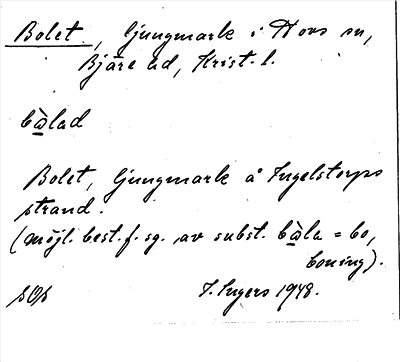 Bolet, ljungmark i Hovs sn,
Bjäre hd, Krist. l.
Bolet, ljungmark å Ingelstorps
strand.
(möjl. best. f. sg. av subst. = bo,
boning).
I. Ingers 1948.